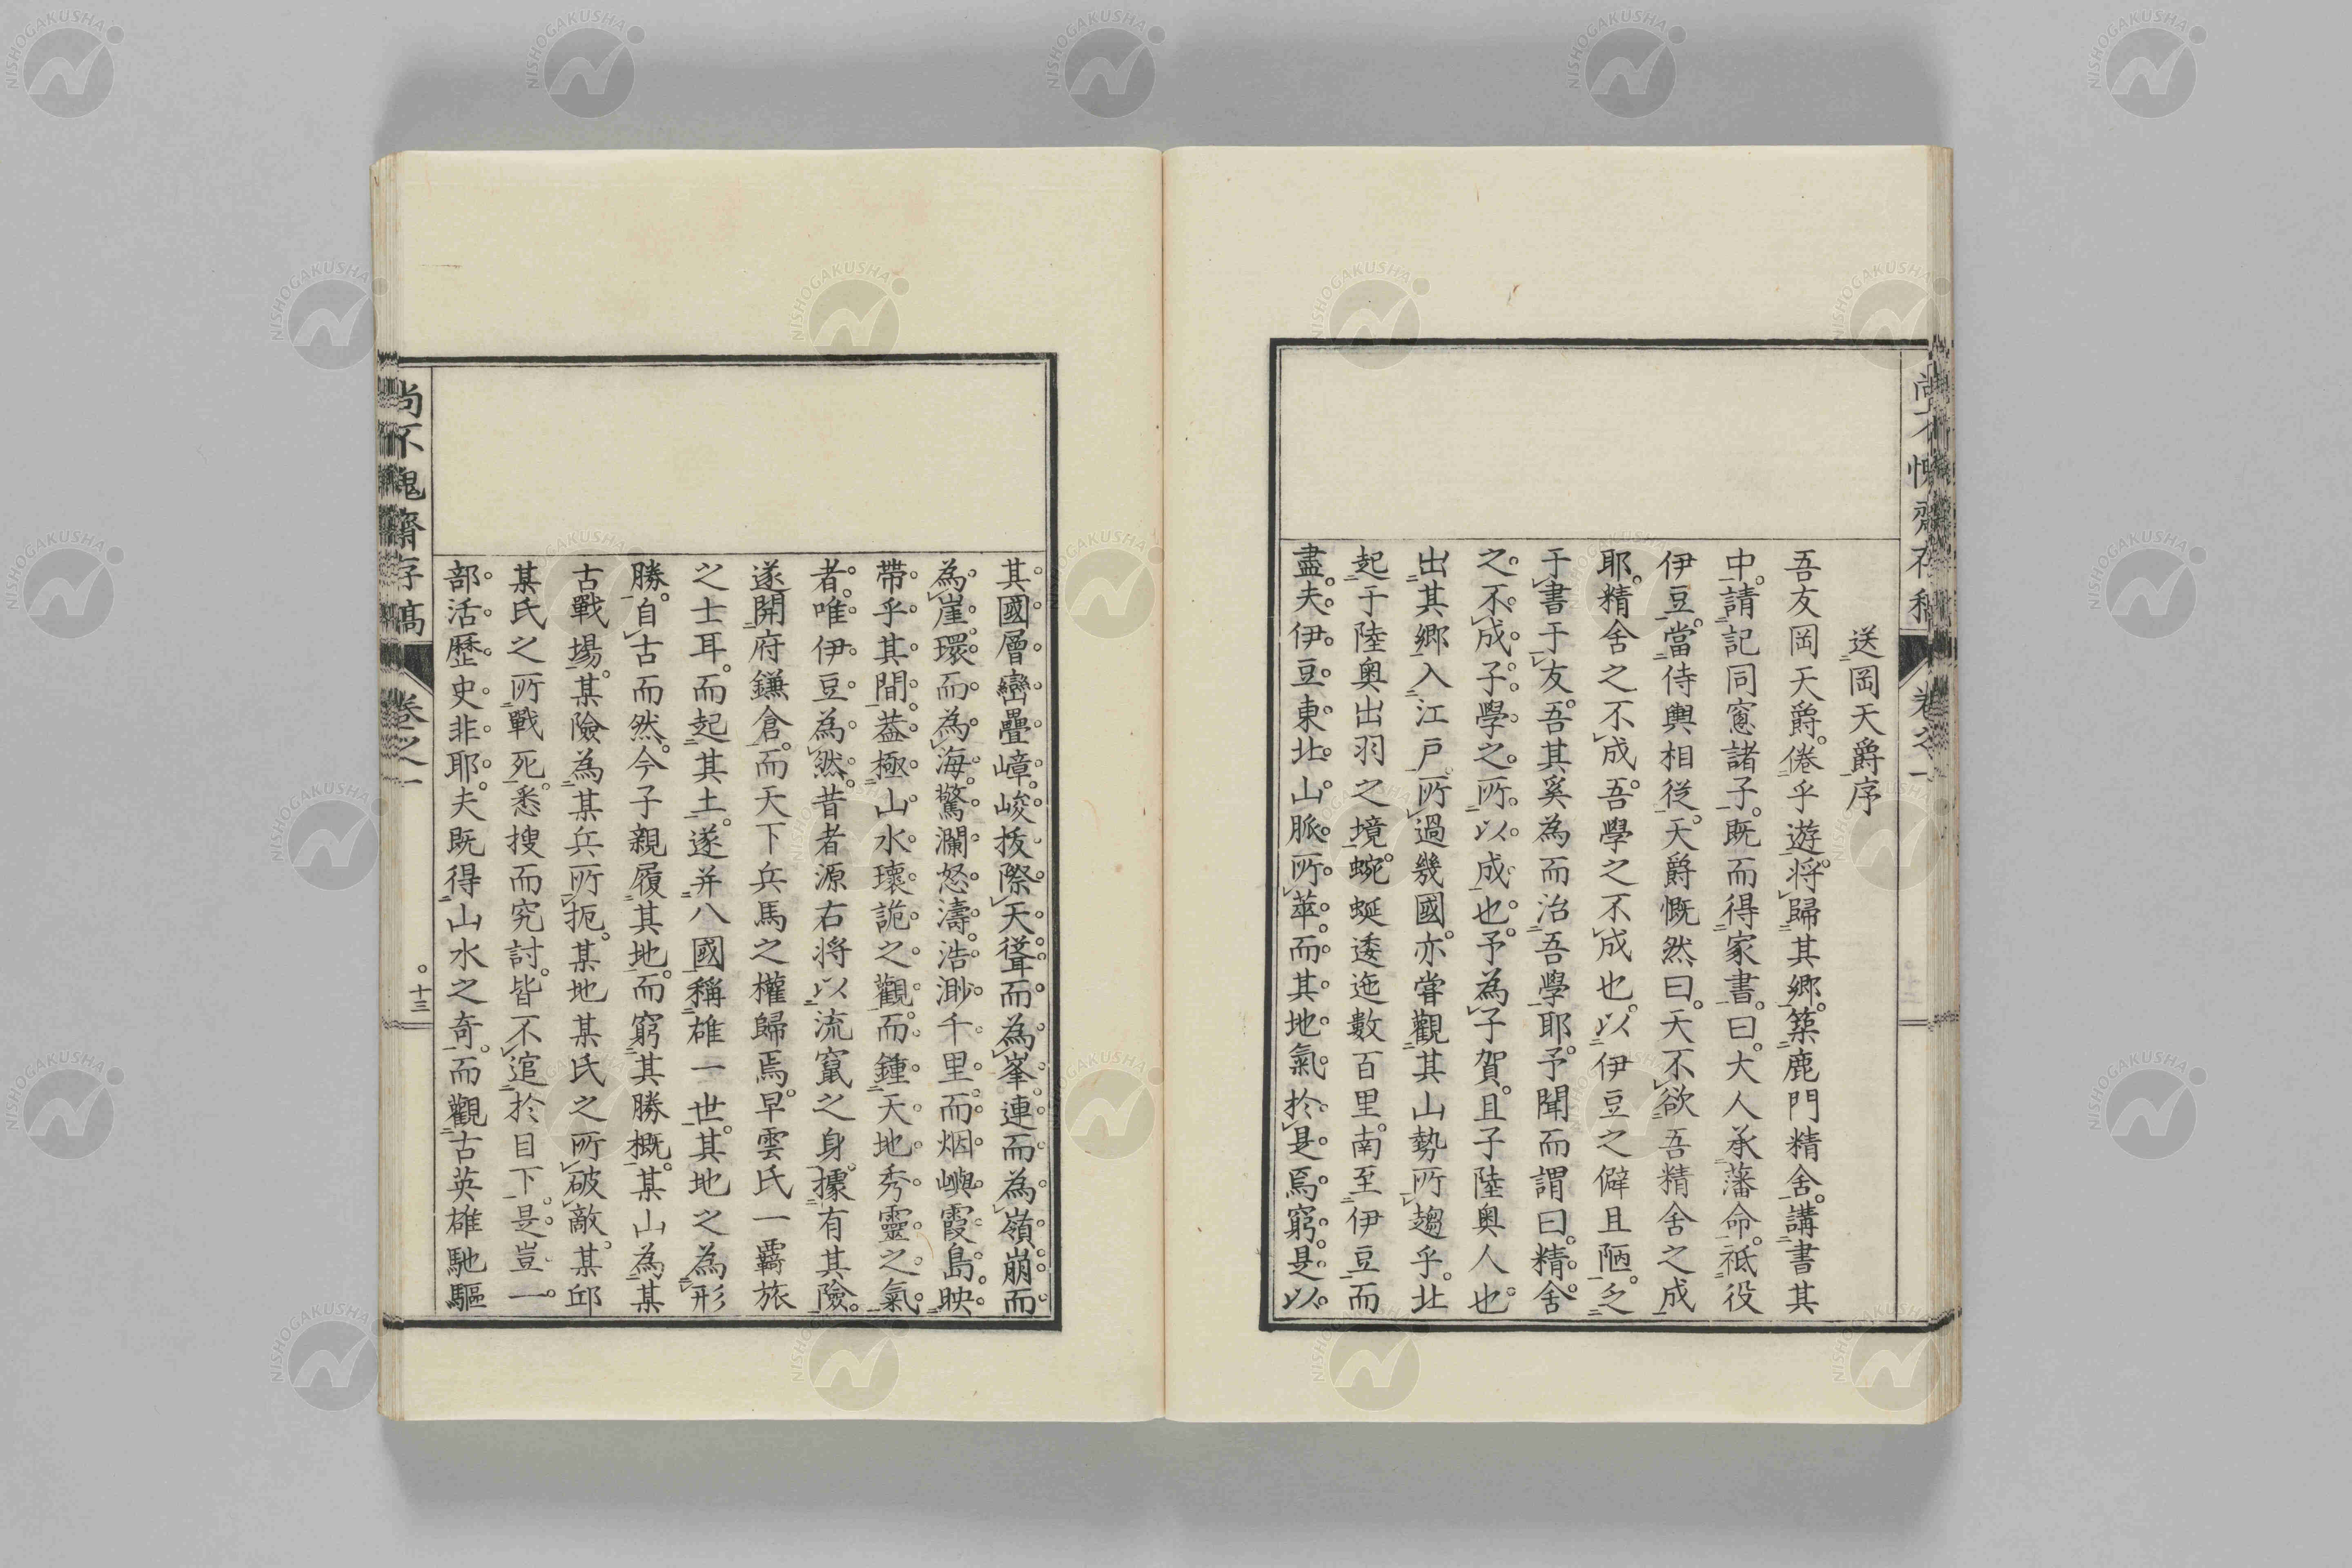 送岡天爵序
吾友岡天爵。倦乎遊。将歸其郷。築鹿門精舍。講書其
中。請記同窻諸子。既而得家書。曰。大人承藩命。祗役
伊豆。當侍輿相從。天爵慨然曰。天不欲吾精舍之成
耶。精舍之不成。吾學之不成也。以伊豆之僻且陋。乏
于書于友。吾其奚為而治吾學耶。予聞而謂曰。精舍
之不成。子學之所以成也。予為子賀。且子陸奥人也
出其郷入江戸。所過幾國。亦甞觀其山勢所趨乎。北
起于陸奥出羽之境。蜿蜒逶迤數百里。南至伊豆而
盡。夫伊豆東北山脈所萃。而其地氣於是焉窮。是以
其國層巒疊嶂。峻抜際天。聳而為峯。連而為嶺。崩而
為崖。環而為海。驚瀾怒濤。浩渺千里。而烟嶼霞島。映
帶乎其間。葢極山水瓌詭之觀。而鍾天地秀靈之氣
者。唯伊豆為然。昔者源右将以流竄之身。據有其險。
遂開府鎌倉。而天下兵馬之權歸焉。早雲氏一覉旅
之士耳。而起其土。遂并八國稱雄一世。其地之為形
勝。自古而然。今子親履其地。而窮其勝概。某山為某
古戰場。某險為某兵所扼。某地某氏之所破敵。某邱
某氏之所戰死。悉搜而究討。皆不追於目下。是豈一
部活歷史非耶。夫既得山水之奇。而觀古英雄馳驅
尚不愧齋存稿 卷之一 十三